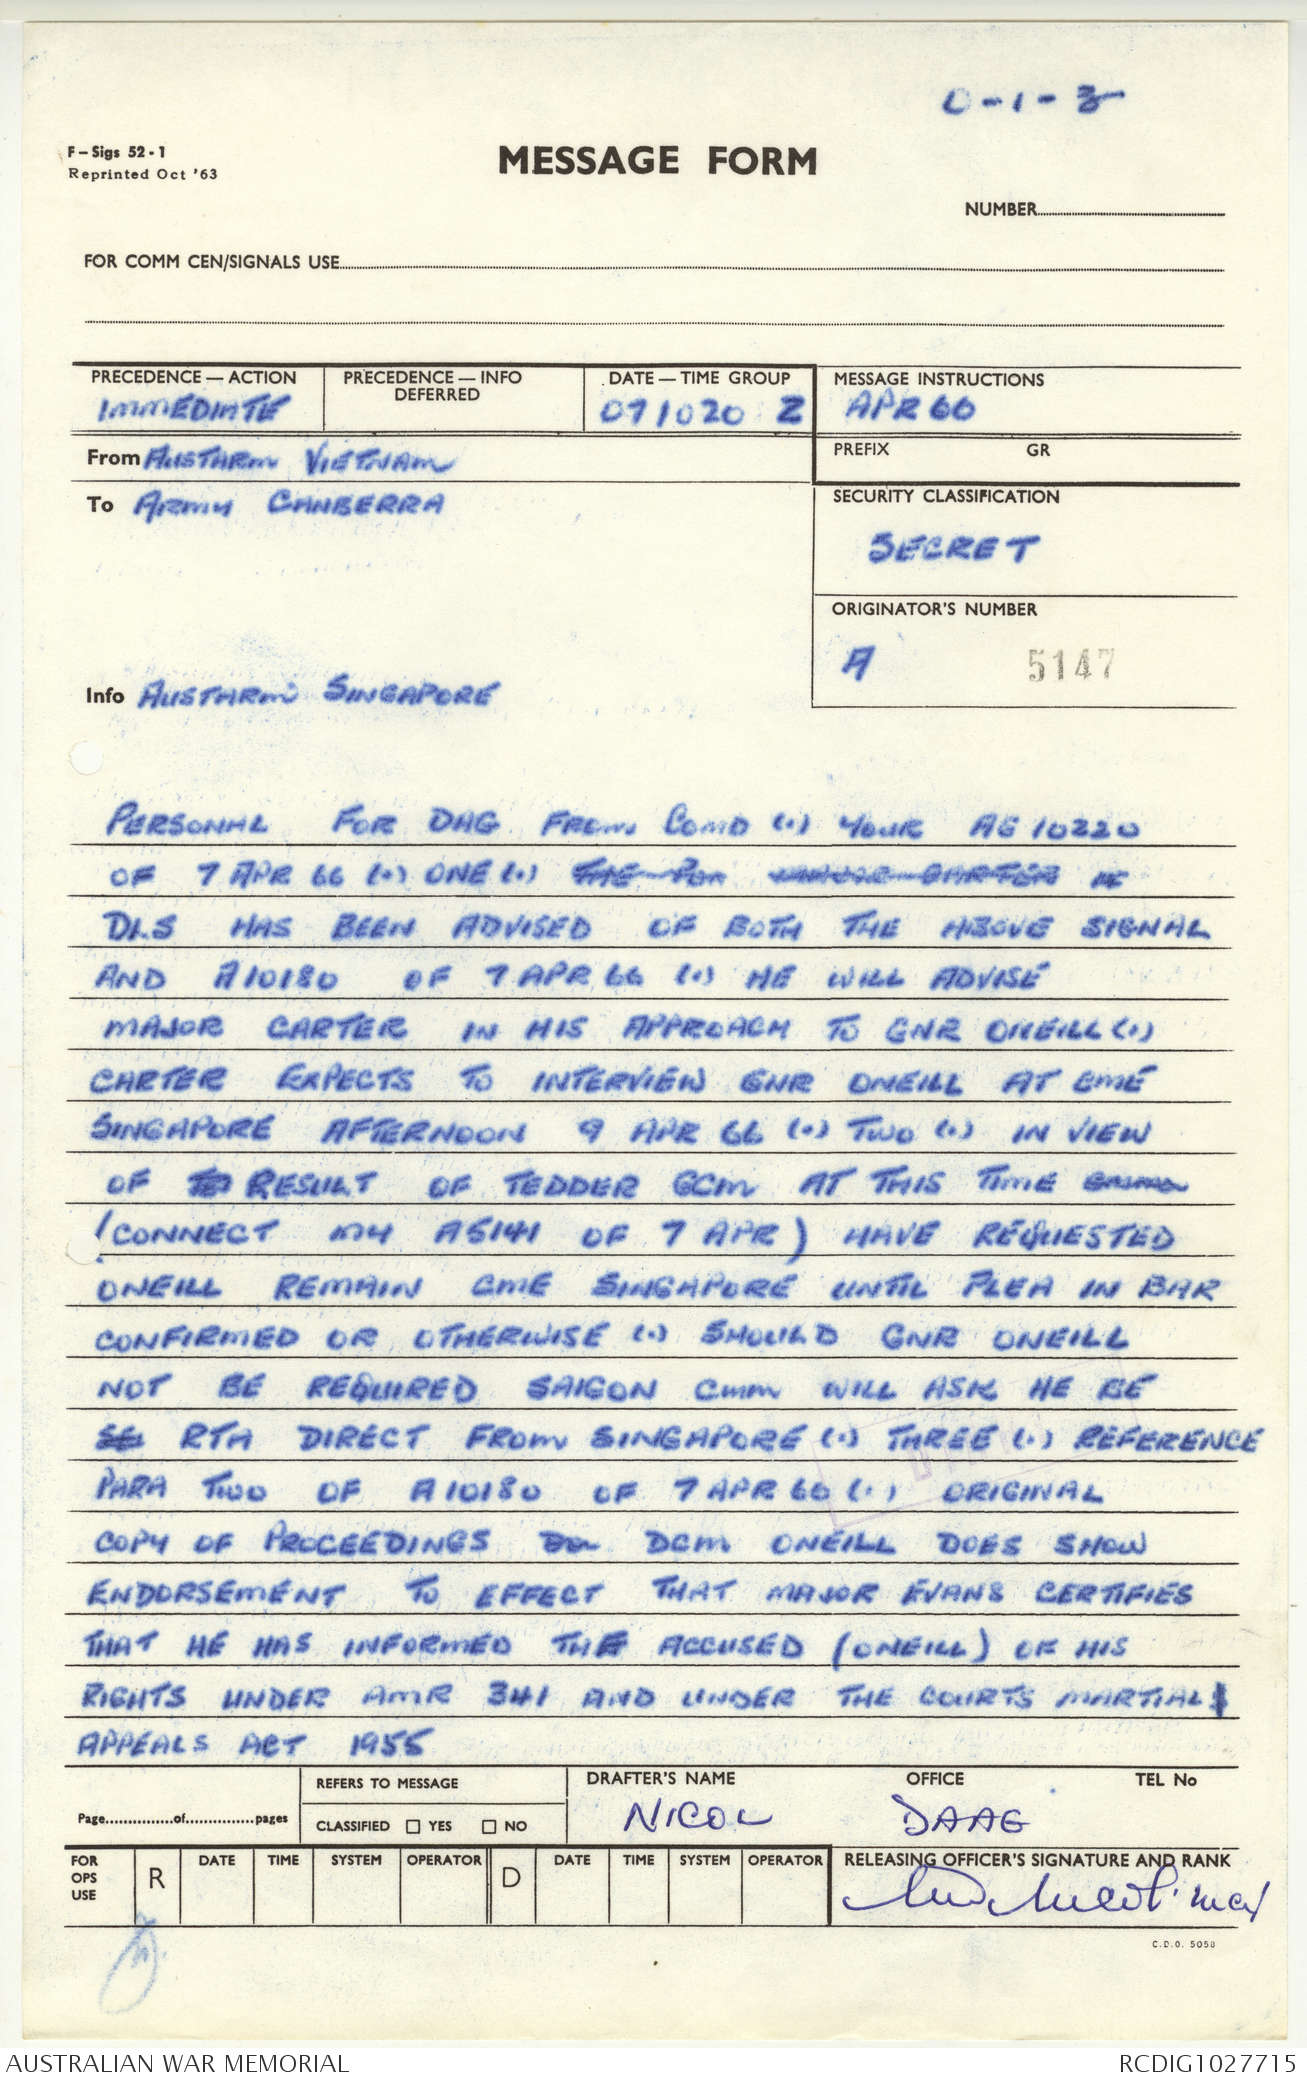 0-1-3
F-Sigs 52-1
Reprinted Oct '63
MESSAGE FORM
NUMBER
FOR COMM CEN/SIGNALS USE
PRECEDENCE — ACTION
IMMEDIATE
PRECEDENCE — INFO
DEFERRED
DATE — TIME GROUP
071020 Z
MESSAGE INSTRUCTIONS
APR 66
From AUSTARM VIETNAM
PREFIX GR
To ARMY CANBERRA
SECURITY CLASSIFICATION
SECRET
ORIGINATOR'S NUMBER
A 5147
Info AUSTARM SINGAPORE
PERSONAL FOR DAG FROM COMD (.) YOUR AG 10220
OF 7 APR 66 (.) ONE (.) THE FOR MAJOR CARTER
DLS HAS BEEN ADVISED OF BOTH THE ABOVE SIGNAL
AND A10180 OF 7 APR 66 (.) HE WILL ADVISE
MAJOR CARTER IN HIS APPROACH TO GNR ONEILL (.)
CARTER EXPECTS TO INTERVIEW GNR ONEILL AT CME
SINGAPORE AFTERNOON 9 APR 66 (.) TWO (.) IN VIEW
OF RESULT OF TEDDER GCM AT THIS TIME
(CONNECT MY A5141 OF 7 APR) HAVE REQUESTED
ONEILL REMAIN CME SINGAPORE UNTIL PLEA IN BAR
CONFIRMED OR OTHERWISE (.) SHOULD GNR ONEILL
NOT BE REQUIRED SAIGON CMM WILL ASK HE BE
RTA DIRECT FROM SINGAPORE (.) THREE (.) REFERENCE
PARA TWO OF A10180 OF 7 APR 66 (.) ORIGINAL
COPY OF PROCEEDINGS DCM ONEILL DOES SHOW
ENDORSEMENT TO EFFECT THAT MAJOR EVANS CERTIFIES
THAT HE HAS INFORMED THE ACCUSED (ONEILL) OF HIS
RIGHTS UNDER AMR 341 AND UNDER THE COURTS MARTIAL
APPEALS ACT 1955
Page of pages
REFERS TO MESSAGE
CLASSIFIED YES NO
DRAFTER'S NAME OFFICE TEL No
NICOL DAAG
FOR OPS USE
R DATE TIME SYSTEM OPERATOR D DATE TIME SYSTEM OPERATOR
RELEASING OFFICER'S SIGNATURE AND RANK
C.D.O. 5058
AUSTRALIAN WAR MEMORIAL
RCDIG1027715